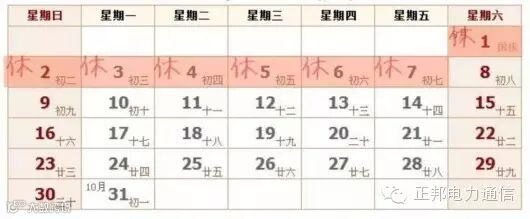 星期日 星期一 星期二 星期三 星期四 星期五 星期六
休 1 国庆
休 2 初二 休 3 初三 休 4 初四 休 5 初五 休 6 初六 休 7 初七 8 初八
9 初九 10 初十 11 十一 12 十二 13 十三 14 十四 15 十五
16 十六 17 十七 18 十八 19 十九 20 二十 21 廿一 22 廿二
23 廿三 24 廿四 25 廿五 26 廿六 27 廿七 28 廿八 29 廿九
30 三十 10月 31 初一
正邦电力通信